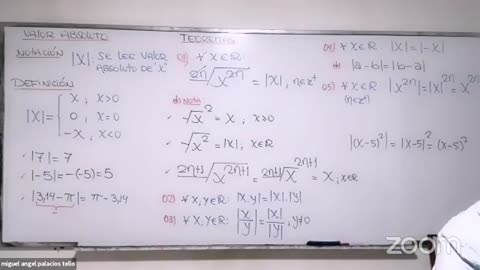 VALOR ABSOLUTO
NOTACIÓN |X|: SE LEE VALOR ABSOLUTO DE "X"
DEFINICIÓN
|X| = { X , X>0
0 , X=0
-X , X<0
✓ |7| = 7
✓ |-5| = -(-5) = 5
✓ |3,14-π| = π-3,14
TEOREMAS
01) ∀ X∈R
2n√X^2n = |X|, n∈Z⁺
NOTA
✓ √X² = X , X>0
✓ √X² = |X|, X∈R
✓ 2n+1√X^2n+1 = X , X∈R
02) ∀ X,Y∈R: |X.Y| = |X|.|Y|
03) ∀ X,Y∈R: |X/Y| = |X|/|Y| , Y≠0
04) ∀ X∈R: |X| = |-X|
|a-b| = |b-a|
05) ∀ X∈R: |X^2n| = |X|^2n = X^2n
(n∈Z⁺)
|(X-5)²| = |X-5|² = (X-5)²
miguel angel palacios tello
zoom